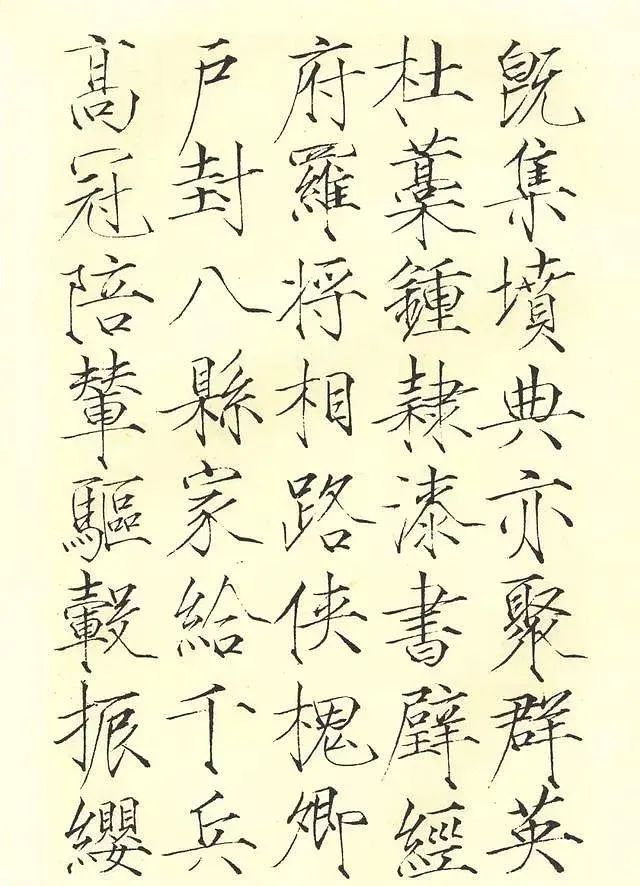 既集墳典亦聚群英
杜藁鍾隸漆書壁經
府羅将相路侠槐卿
戶封八縣家給千兵
髙冠陪輦驅轂振纓